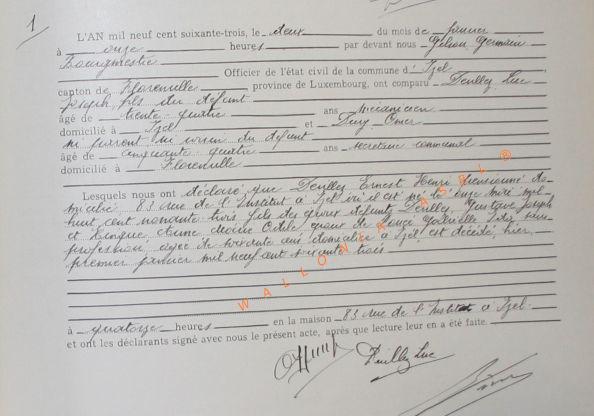 1
L'AN mil neuf cent soixante-trois, le deux du mois de janvier
à onze heures par devant nous Gilson Germain
Bourgmestre
Officier de l'état civil de la commune d'Izel
canton de Florenville province de Luxembourg, ont comparu Deuillez Luc
Joseph, fils du défunt
âgé de trente-quatre ans mécanicien
domicilié à Izel et Omer
ni parent ni voisin du défunt
âgé de cinquante quatre ans secrétaire communal
domicilié à Florenville
Lesquels nous ont déclaré que Deuillez Ernest Henri pensionné do-
micilié 83 rue de l'Institut à Izel où il est né le onze mil
huit cent nonante trois, fils des époux défunts Deuillez Gustave Joseph
et Marie Odile, époux de Gabrielle sans
profession âgée de soixante ans domiciliée à Izel, est décédé hier,
premier janvier mil neuf cent soixante trois
à quatorze heures en la maison 83 rue de l'Institut à Izel.
et ont les déclarants signé avec nous le présent acte, après que lecture leur en a été faite.
Deuillez Luc
WALLONIA ASBL ®